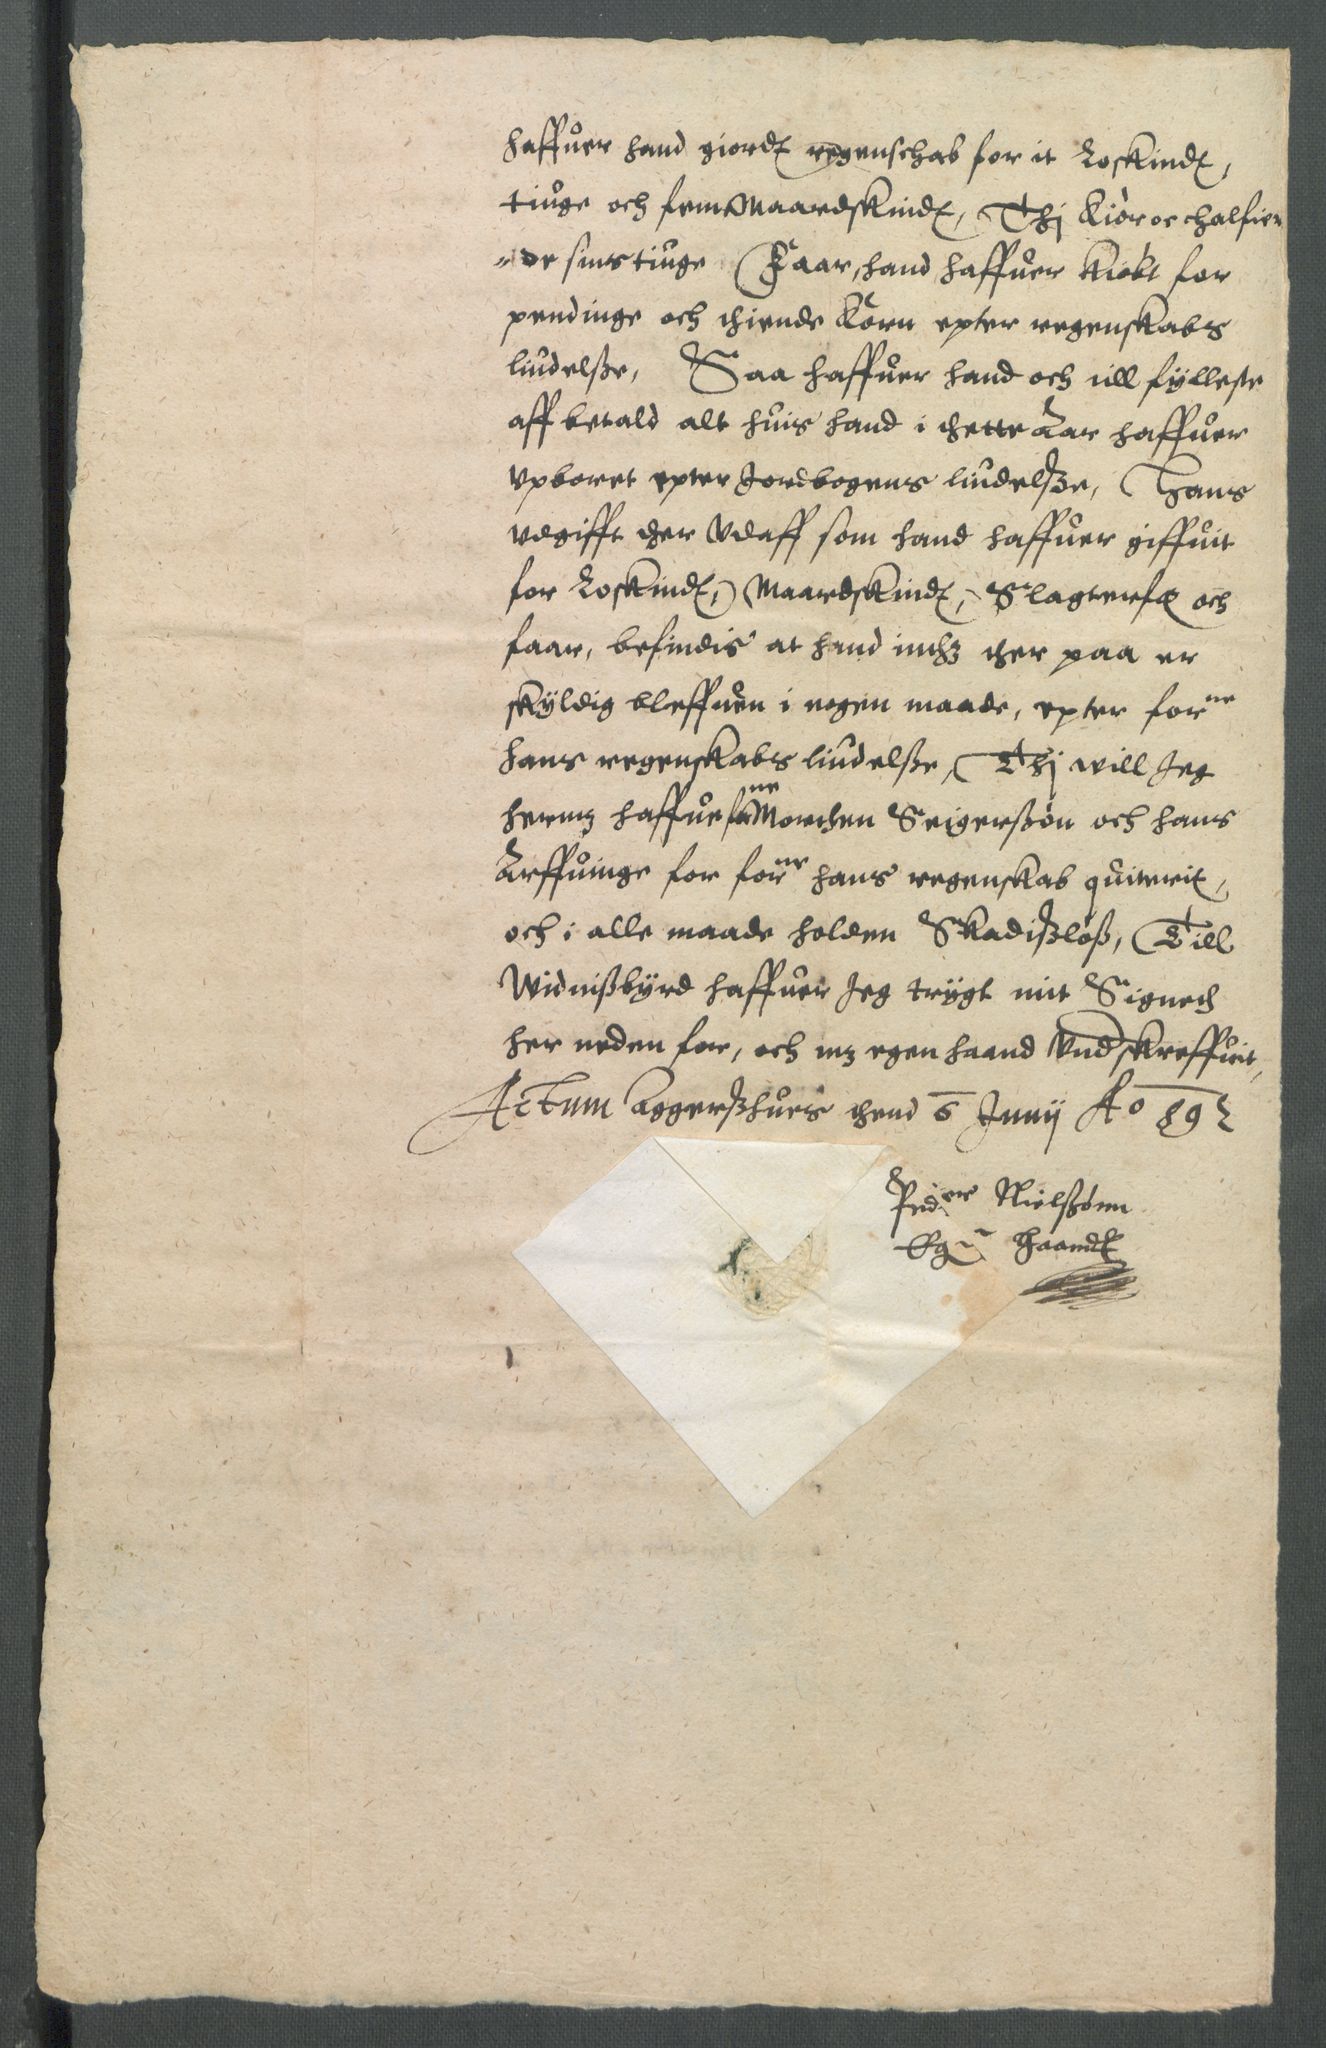 haffuer hand giordt regenschab for it Loskindt,
tiuge och fem Maardskindt, Thj Kiør och halfier
„de sins tiuge Faar, hand haffuer kiøbt for
pendinge och thiende Korn epter regenskabs
liudelße, Saa haffuer hand och till fÿlleste
aff betald alt huis hand i thette Aar haffuer
vpboret epter Jordbogens liudelße, Hans
vdgifft ther vdaff som hand haffuer giffuit
for Loskindt, Maardskindt, Slagterfæ och
faar, befindis at hand inthz ther paa er
skÿldig bleffuen i nogen maade, epter forne
hans regenskabs liudelße, Thj will Jeg
hermz haffue forne Morthen Seigerßøn och hans
Arffuinge for forne hans regenskab quiterit,
och i alle maade holden Skadißløß, Till
Widnißbÿrd haffuer Jeg trÿgt mit Signeth
her neden for, och mz egen haand vnd skreffuit,
Actum Aggerßhues thend 6 Junij Ao 92
Peder Nielßønn
Egn Haandt